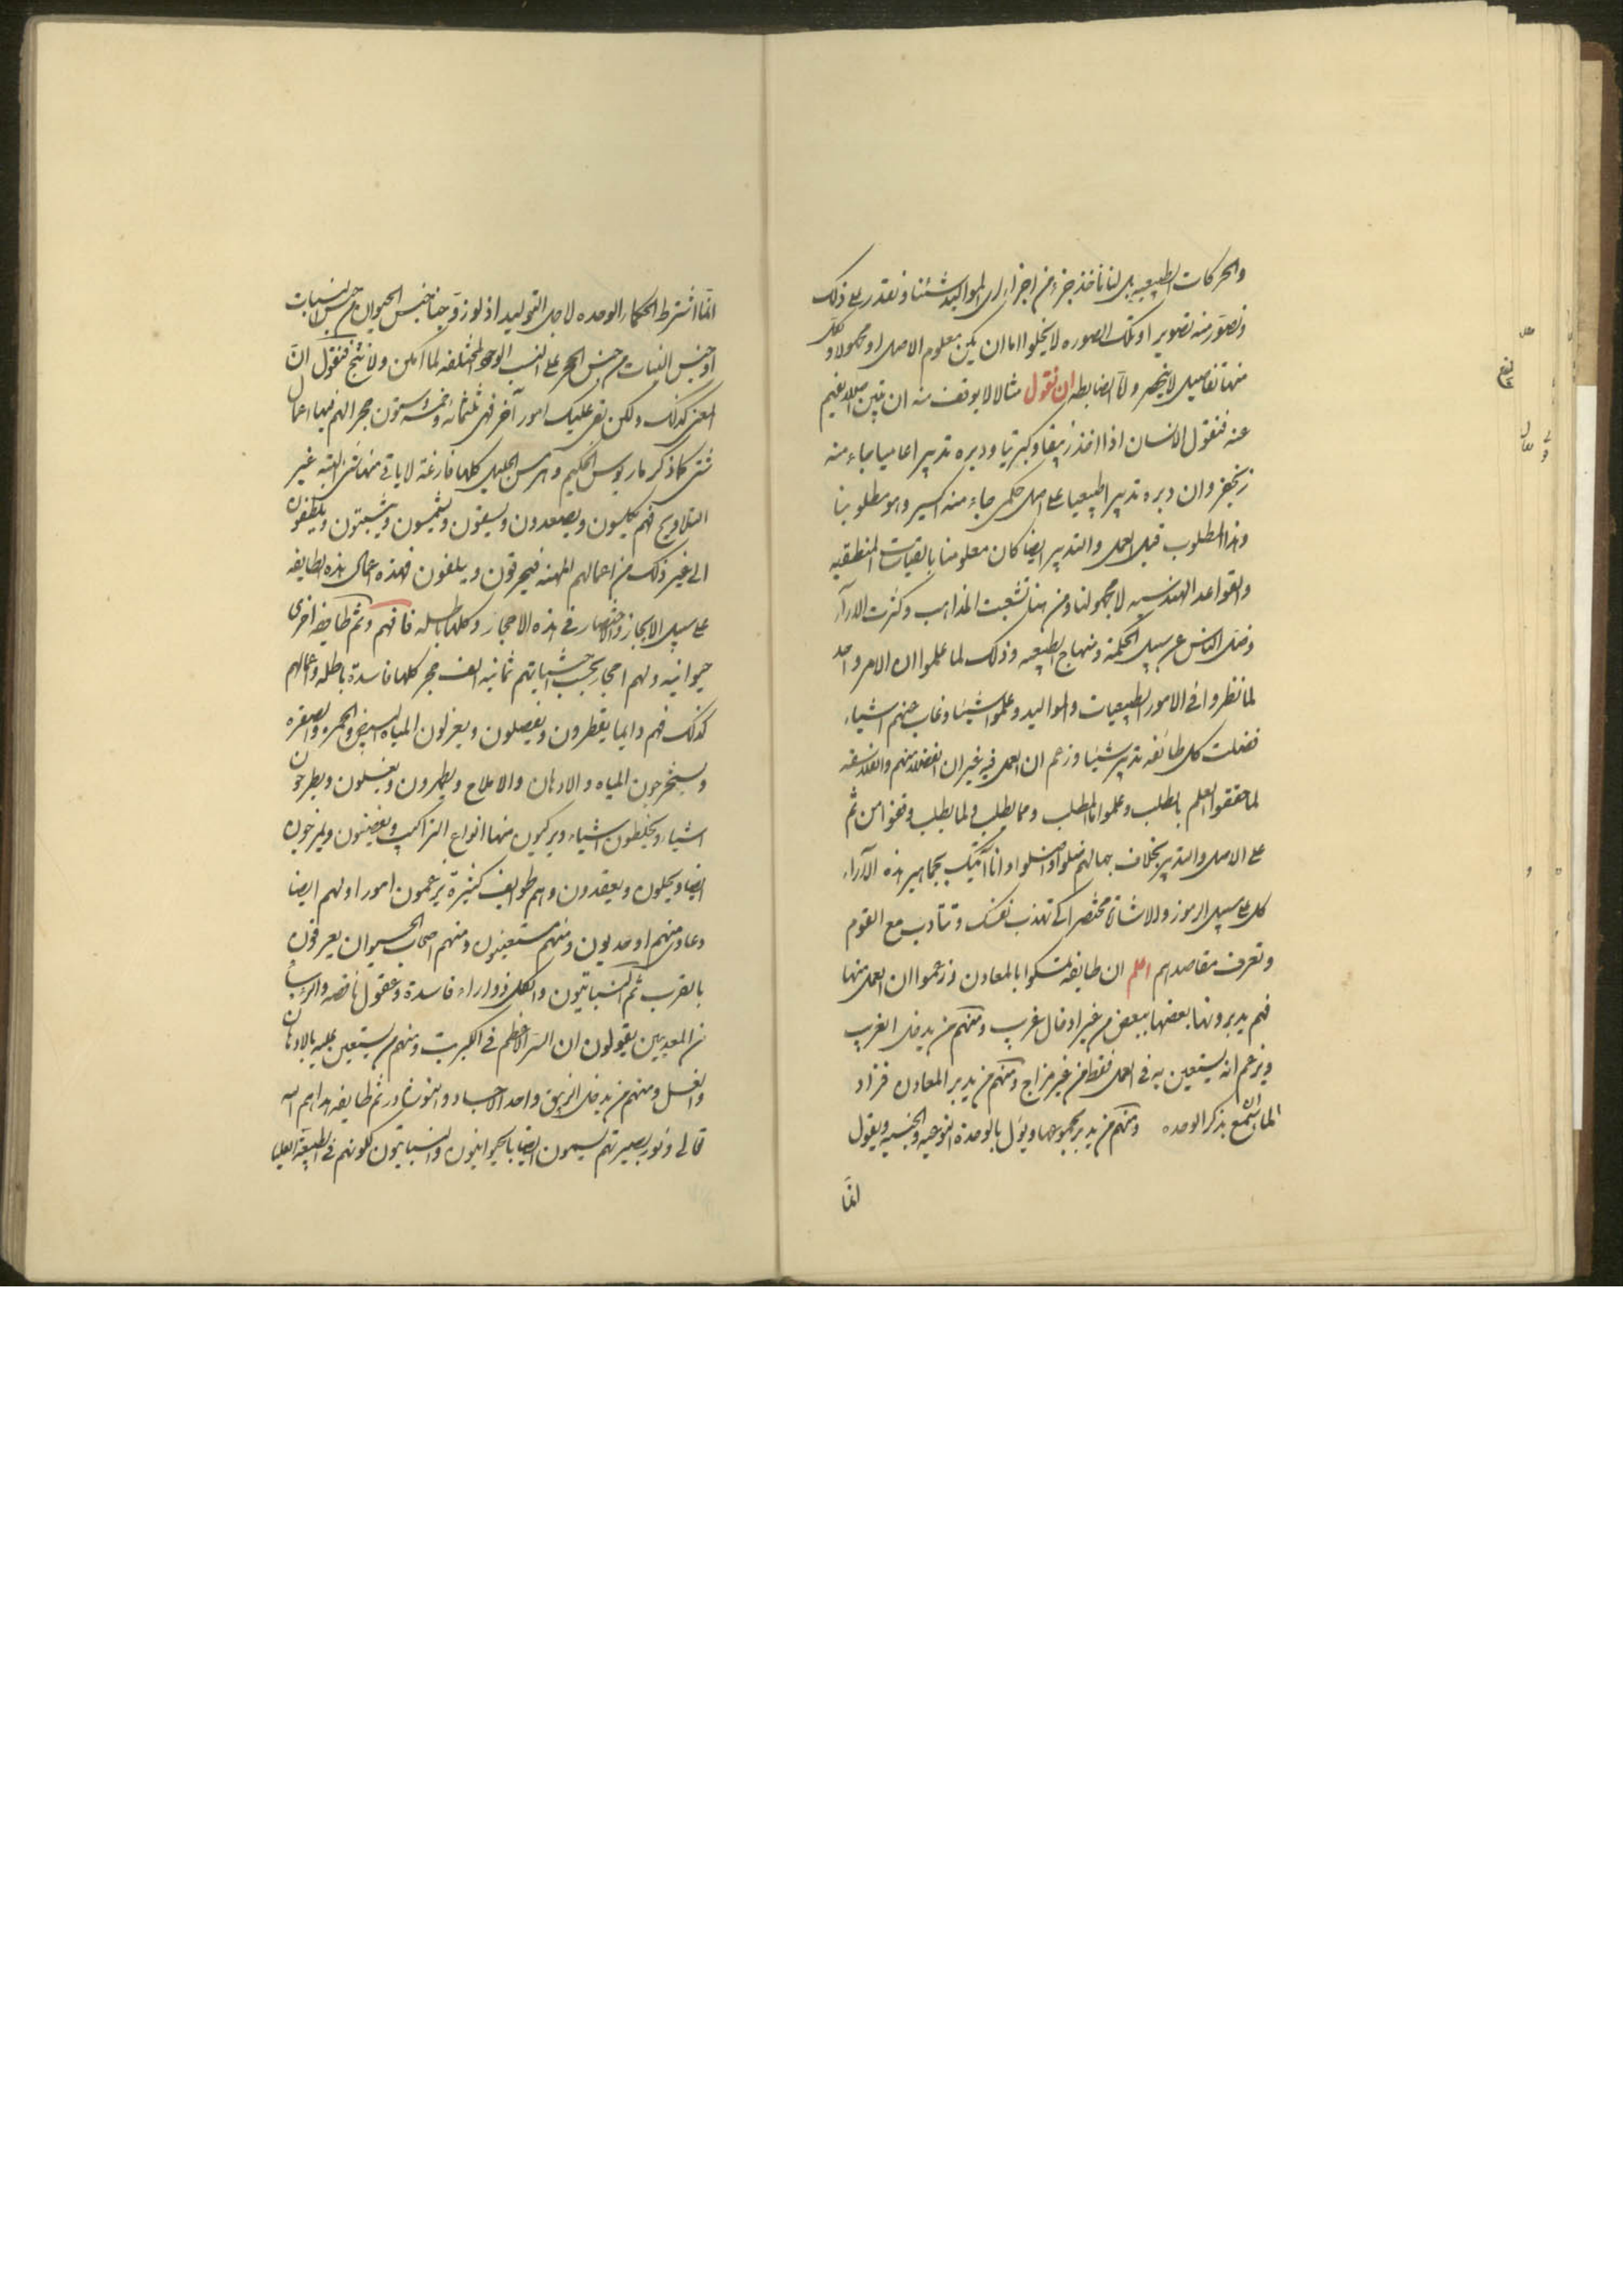 والحركات الطبيعيه بل لنا ناخذ جزء من اجزاء اى المواليد شئنا ونقدر على ذلك
ونصور منه تصوير او تلك الصوره لا يخلوا اما ان يكون معلوم الاصل او مجهولا ولكل
منها تفاصيل لا ينحصر ولنا الضابط ان نقول مثالا لا يوقف منه ان
عنه فنقول الانسان اذا اخذ زيبقا وكبريتا ودبره تدبيرا عاميا جاء منه
زنجفر وان دبره تدبيرا طبيعيا على اصل حكمى جاء منه اكسير وهو مطلوبنا
وهذا المطلوب قبل العمل والتدبير ايضا كان معلومنا بالقياسات المنطقيه
والقواعد الهندسيه لا مجهولنا ومن هنا تشعبت المذاهب وكثرت الاراء
وضل الناس عن سبيل الحكمة ومنهاج الطبيعه وذلك لما علموا ان الامر واحد
لما نظروا فى الامور الطبيعيات والمواليد وعلموا شيئا وغاب عنهم اشياء
فضلت كل طائفه تدبر شيئا وزعم ان العمل فيه غير ان الفضلاء منهم والفلاسفه
لما حققوا العلم بالمطلب وعلموا ما المطلب ومما يطلب ولما يطلب وقفوا من ثم
على الاصل والتدبير بخلاف جهالهم ضلوا واضلوا وانا آتيك بجماهير هذه الآراء
كل على سبيل الرموز والاشارة مختصرا كى تهذب نفسك وتتأدب مع القوم
وتعرف مقاصدهم اعلم ان طايفه تمسكوا بالمعادن وزعموا ان العمل منها
فهم يدبرونها بعضها ببعض من غير ادخال غريب ومنهم من يدخل الغريب
ويزعم انه يستعين به فى العمل فقط من غير مزاج ومنهم من يدبر المعادن فرادا
لما ان سمع بذكر الوحده ومنهم من يدبر مجموعها ويئول بالوحدة النوعيه والجنسيه ويقول
انما
انما اشترط الحكماء الوحده لاجل التوليد اذ لو زوجنا جنس الحيوان من جنس النبات
او جنس النبات من جنس الحجر على النسب الوحد المختلفه لما امكن ولا نتج فنقول ان
المعنى كذلك ولكن بقى عليك امور آخر فهى ثلثمائه وخمسه وستون حجرا لهم فيها اعمال
شتى كما ذكر ماريوس الحكيم وهرمس الجليل كلها فارغة لا ياتى منها شئ البتة غير
التلاويح فهم يكلسون ويصعدون ويسقون ويشمسون ويثبتون ويلطفون
الى غير ذلك من اعمالهم المهنه فيحرقون ويبلغون فهذه اعمال هذه الطايفه
على سبيل الايجاز والاختصار فى هذه الاحجار وكلها باطله فافهم وثم طايفه اخرى
حيوانيه ولهم احجار بحسب حسباناتهم ثمانيه الف حجر كلها فاسدة باطله واعمالهم
كذلك فهم دايما يقطرون ويفصلون ويعزلون المياه البيض والحمره والصفره
ويستخرجون المياه والادهان والاملاح ويطهرون ويغسلون ويطرحون
اشياء ويخلطون اشياء ويركبون منها انواع التراكيب ويعفنون ويمزجون
ايضا ويحلون ويعقدون وهم طوايف كثيرة يزعمون امورا ولهم ايضا
دعاوى منهم اوحديون ومنهم مستعينون ومنهم اصحاب الحيوان يعرفون
بالقرب ثم النباتيون والكل ذو اراء فاسدة وعقول ناقصه والرؤسا
من المعدنيين يقولون ان السر الاعظم فى الكبريت ومنهم من يستعين عليه بالادهان
والغسل ومنهم من يدخل الزيبق واحد الاجساد والنوشادر ثم طايفه هداهم الله
تعالى ونور بصيرتهم يسمون ايضا بالحيوانيون والنباتيون لكونهم فى الطبيعة العليا